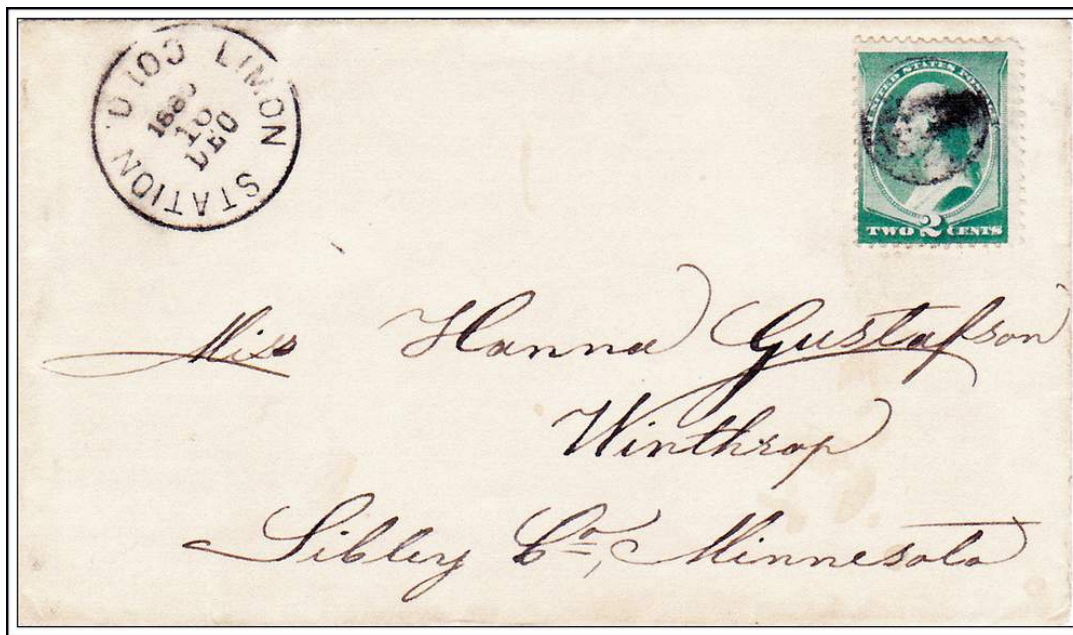 LIMON STATION COLO.
10
DEC
UNITED STATES POSTAGE
TWO 2 CENTS
Miss Hanna Gustafson
Winthrop
Sibley Co, Minnesota